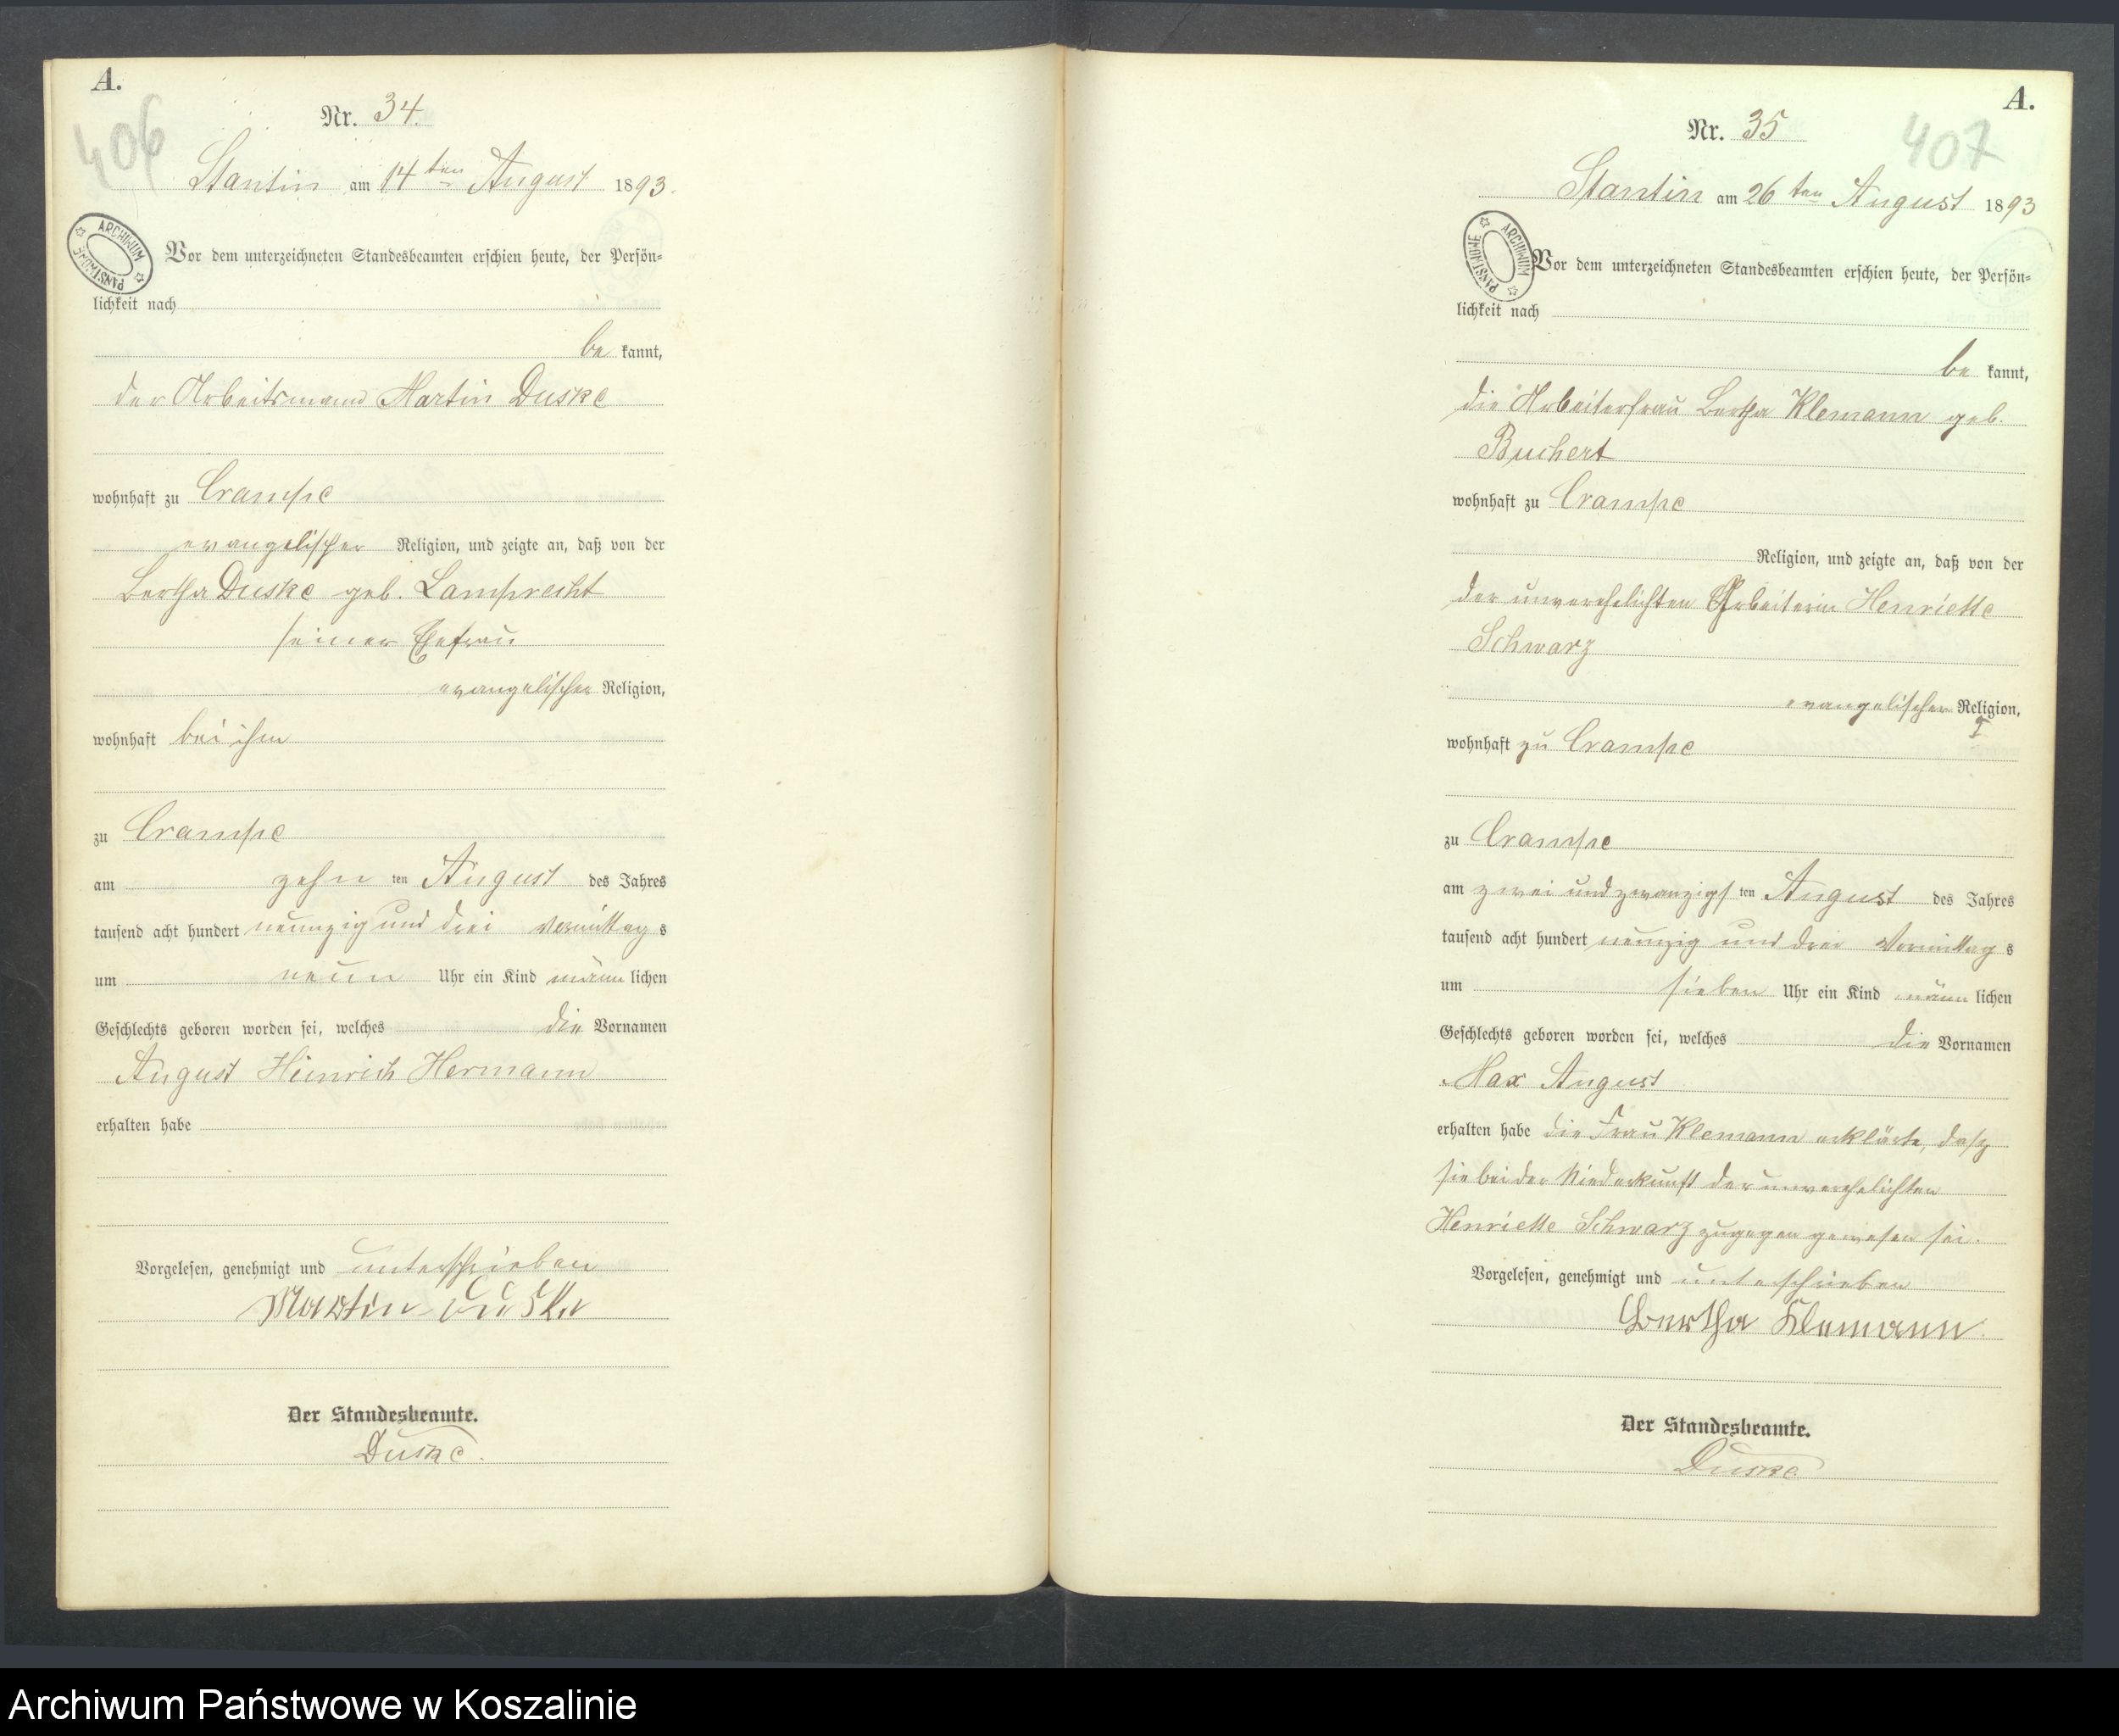 A.
406
Nr. 34.
Stantin am 14ten August 1893.
ARCHIWUM PAŃSTWOWE
Vor dem unterzeichneten Standesbeamten erschien heute, der Persön-
lichkeit nach
be kannt,
der Arbeitsmann Martin Duske
wohnhaft zu Crampe
evangelischer Religion, und zeigte an, daß von der
Bertha Duske geb. Lamprecht
seiner Ehefrau
evangelischer Religion,
wohnhaft bei ihm
zu Crampe
am zehn ten August des Jahres
tausend acht hundert neunzig und drei Vormittag s
um neun Uhr ein Kind männ lichen
Geschlechts geboren worden sei, welches die Vornamen
August Heinrich Hermann
erhalten habe
Vorgelesen, genehmigt und unterschrieben
Martin Duske
Der Standesbeamte.
Duske.
A.
407
Nr. 35
Stantin am 26ten August 1893
ARCHIWUM PAŃSTWOWE
Vor dem unterzeichneten Standesbeamten erschien heute, der Persön-
lichkeit nach
be kannt,
die Arbeiterfrau Bertha Klemann geb.
Buchert
wohnhaft zu Crampe
Religion, und zeigte an, daß von der
der unverehelichten Arbeiterin Henriette
Schwarz
evangelischer Religion,
wohnhaft zu Crampe
zu Crampe
am zwei und zwanzigs ten August des Jahres
tausend acht hundert neunzig und drei Vormittag s
um sieben Uhr ein Kind männ lichen
Geschlechts geboren worden sei, welches die Vornamen
Max August
erhalten habe die Frau Klemann erklärte, daß
sie bei der Niederkunft der unverehelichten
Henriette Schwarz zugegen gewesen sei.
Vorgelesen, genehmigt und unterschrieben
Bertha Klemann.
Der Standesbeamte.
Duske
Archiwum Państwowe w Koszalinie